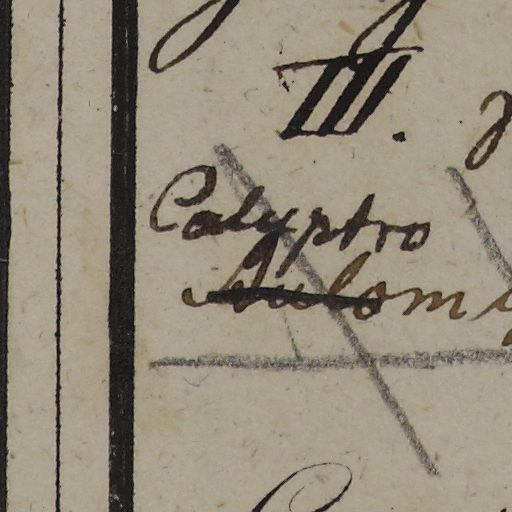 III.
Calyptro
Aulom